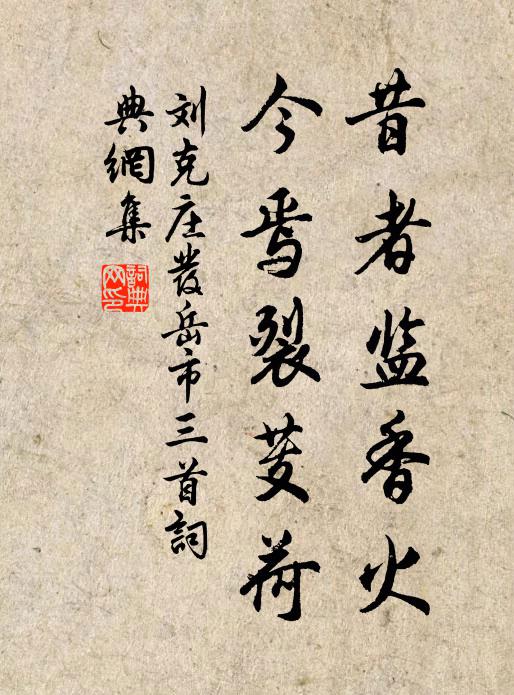 昔者监香火
今焉裂芰荷
刘克庄发岳市三首詞
典網集
詞典
网印